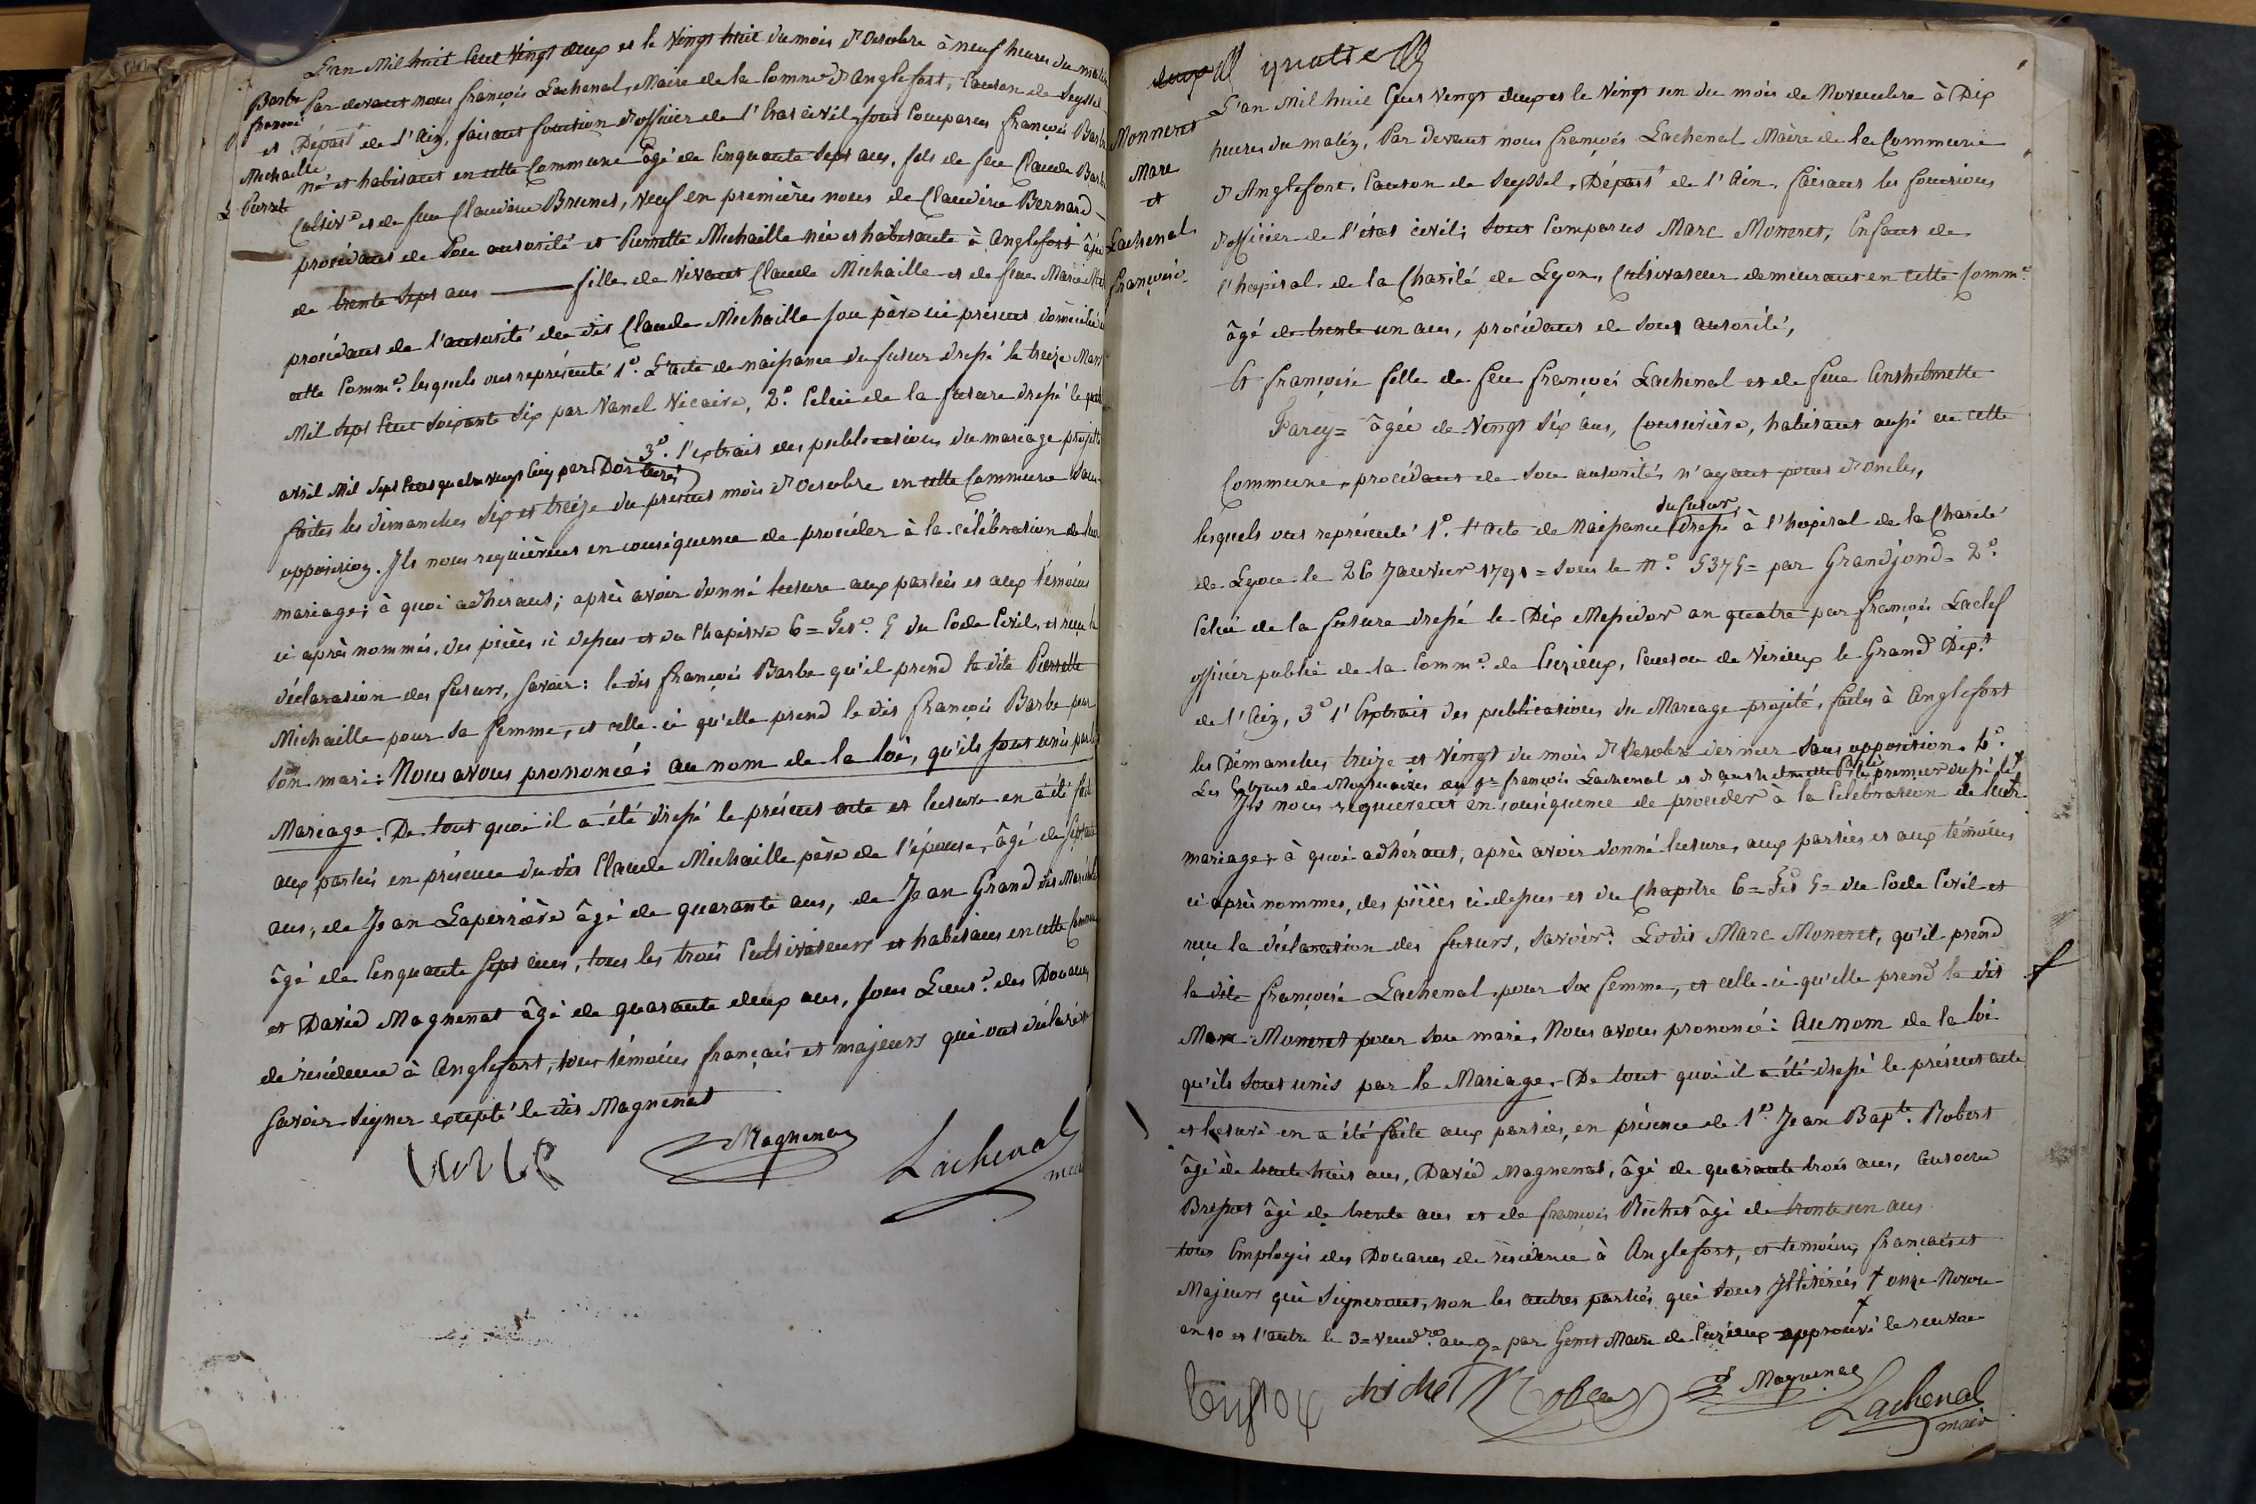 L'an Mil huit Cent Vingt deux et le Vingt huit du mois d'Octobre à neuf heures du matin
Par devant nous françois Lachenal, Maire de la Comm.e d'anglefort, Canton de Seyssel
Barbe
françois
et
Michaille
Pierrette
Départ.t de l'Ain, faisant fonction d'officier de l'Etat civil, sont Comparus françois Barbe
né et habitant en cette Commune âgé de Cinquante Sept ans, fils de feu Claude Barbe
Cultiv.r et de feue Claudine Brunet, Veuf en premières noces de Claudine Bernard
procédant de Son autorité et Pierrette Michaille née et habitante à anglefort âgée
de trente Sept ans fille de Vivant Claude Michaille et de feue Marie
procédant de l'autorité du dit Claude Michaille Son père ici présent domicilié en
cette Comm.e lesquels ont représenté 1.o L'acte de naissance du futur dressé le treize Mars
Mil Sept Cent Soixante Six par Vanel Vicaire, 2.o Celui de la future dressé le quatre
avril Mil Sept Cent quatre vingt Cinq par curé 3.o l'extrait des publications du mariage projeté
faites les dimanches Six et treize du présent mois d'Octobre en cette Commune Sans
opposition. Ils nous requièrent en conséquence de procéder à la célébration de leur
mariage; à quoi adhérant; après avoir donné lecture aux parties et aux témoins
ci après nommés, des pièces ci dessus et du Chapitre 6 = Tit.e 5 du Code Civil, et reçu la
déclaration des futurs, Savoir: le dit françois Barbe qu'il prend la dite Pierrette
Michaille pour Sa femme, et celle-ci qu'elle prend le dit françois Barbe pour
Son mari: Nous avons prononcé: au nom de la loi, qu'ils Sont unis par le
Mariage. De tout quoi il a été dressé le présent acte et lecture en a été faite
aux parties en présence du dit Claude Michaille père de l'épouse, âgé de Septante
ans, de Jean Laperrière âgé de quarante ans, de Jean Grand dit Maréchal
âgé de Cinquante Sept ans, tous les trois Cultivateurs et habitans en cette Commune
et David Magnenat âgé de quarante deux ans, Sous Lieut.t des Douanes
de résidence à Anglefort, tous témoins français et majeurs qui ont déclaré ne
Savoir Signer excepté le dit Magnenat
Magnenat
Lachenal
maire
deux quatre
L'an Mil huit Cent Vingt deux et le Vingt un du mois de Novembre à Dix
Monneret
Marc
et
Lachenal
Françoise
heures du matin, Par devant nous françois Lachenal Maire de la Commune
d'Anglefort, Canton de Seyssel, Départ.t de l'Ain, faisant les fonctions
d'officier de l'état civil; Sont Comparus Marc Moneret, Enfant de
l'hopital de la Charité de Lyon, Cultivateur demeurant en cette Comm.e
âgé de trente un ans, procédant de Son autorité,
Et françoise fille de feu françois Lachenal et de feue Anthelmette
Parcy = âgée de Vingt Six ans, Couturière, habitant aussi en cette
Commune, procédant de Son autorité, n'ayant point d'oncles,
lesquels ont représenté 1.o l'acte de Naissance du futur dressé à l'hopital de la Charité
de Lyon le 26 Janvier 1791 = Sous le N.o 5375 = par Grandjond = 2.o
Celui de la future dressé le Dix Messidor an quatre par françois Laclef
officier public de la Comm.e de Cuzieux, Canton de Virieux le Grand Dép.t
de l'Ain, 3.o l'Extrait des publications du Mariage projeté, faites à Anglefort
les Dimanches treize et Vingt du mois d'Octobre dernier Sans opposition. 4.o
Les Extraits de Mortuaires de françois Lachenal et d'anthelmette Parcy le premier dressé le †
Ils nous requierent en conséquence de procéder à la Célébration de leur
mariage; à quoi adhérant, après avoir donné lecture, aux parties et aux témoins
ci après nommés, des pièces ci-dessus et du Chapitre 6 = Tit 5 = du Code Civil et
reçu la déclaration des futurs, Savoir: Le dit Marc Moneret, qu'il prend
la dite françoise Lachenal, pour Sa femme, et celle-ci qu'elle prend le dit
Marc Moneret pour Son mari, Nous avons prononcé: Au nom de la loi
qu'ils Sont unis par le Mariage. De tout quoi il a été dressé le présent acte
et lecture en a été faite aux parties, en présence de 1.o Jean Bap.te Robert
âgé de trente huit ans, David Magnenat, âgé de quarante trois ans, Antoine
Bressot âgé de trente ans et de françois Richet âgé de trente un ans
tous Employés des Douanes de résidence à Anglefort, et témoins français et
Majeurs qui Signeront, non les autres parties qui Sont Illitérées † onze Novem
an 10 et l'autre le 3 = vend.re an 9 = par Genet Maire de Cuzieux approuvé le renvoi
Richet Robert D Magnenat
Lachenal
maire